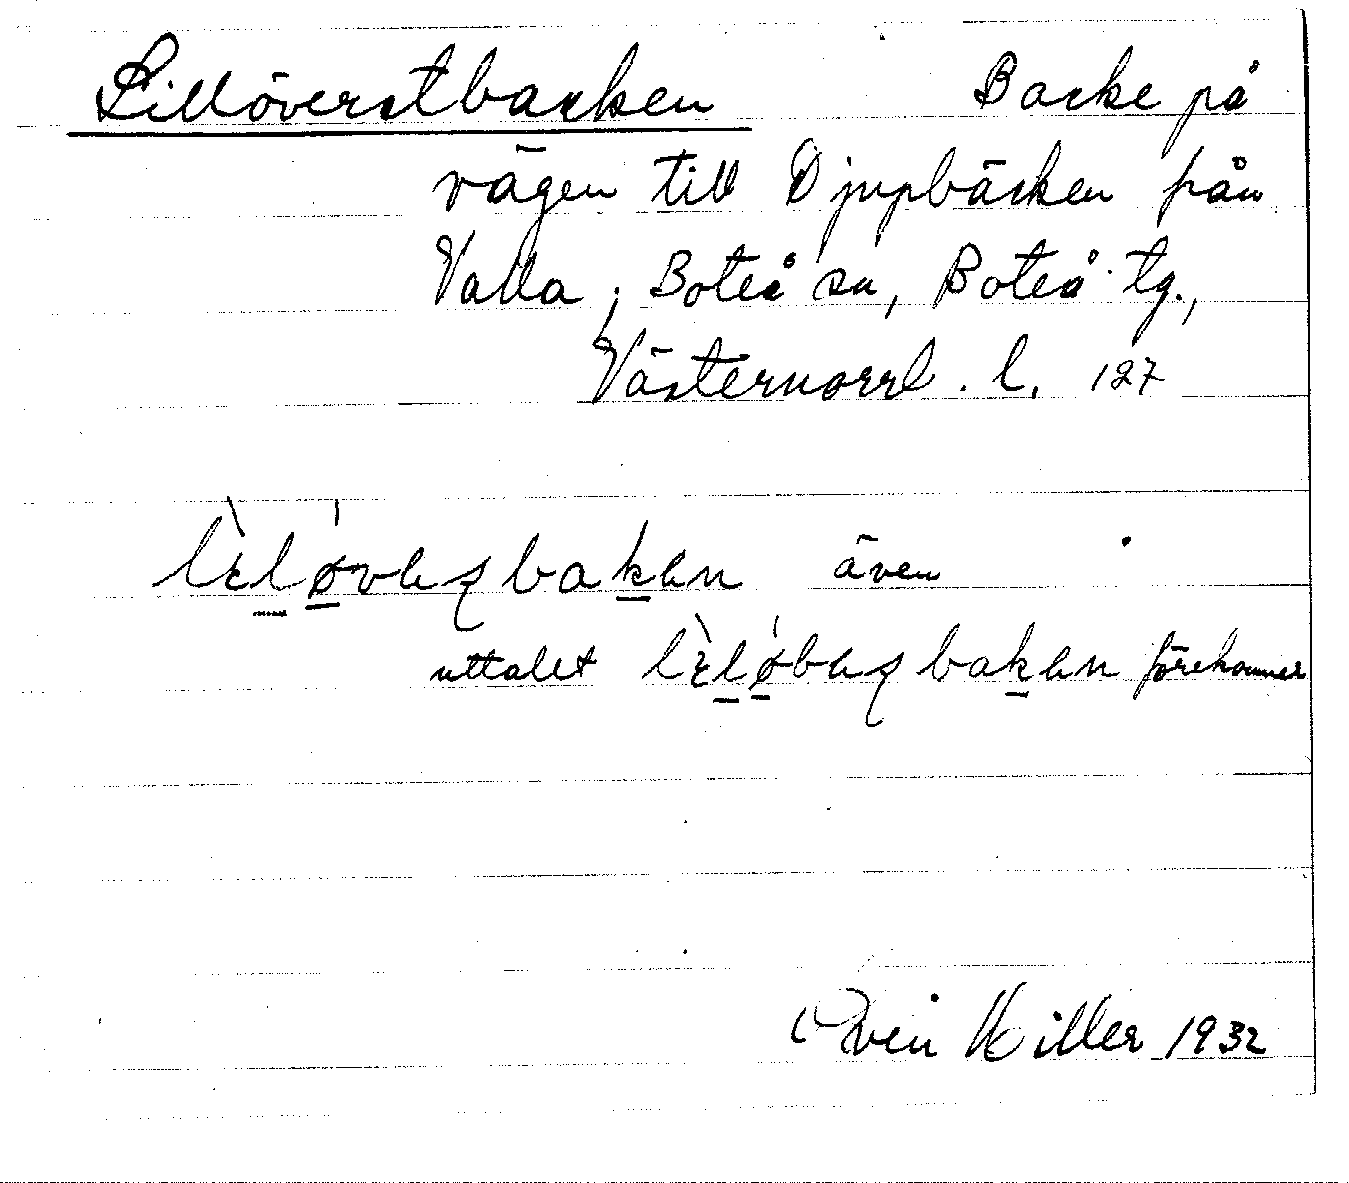 Lillöverstbacken Backe på
vägen till Djupbäcken från
Valla, Boteå sn, Boteå tg.,
Västernorrl. l. 127
även
uttalet förekommer
1932